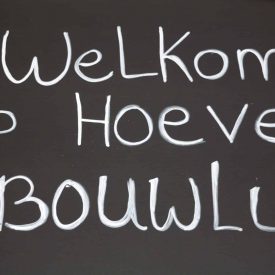 WELKOM
HOEVE
BOUWLU